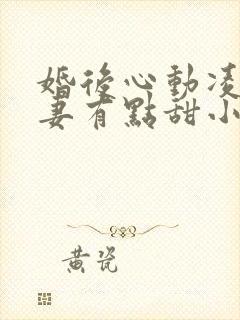 婚後心動凌
妻有點甜小
黃瓷